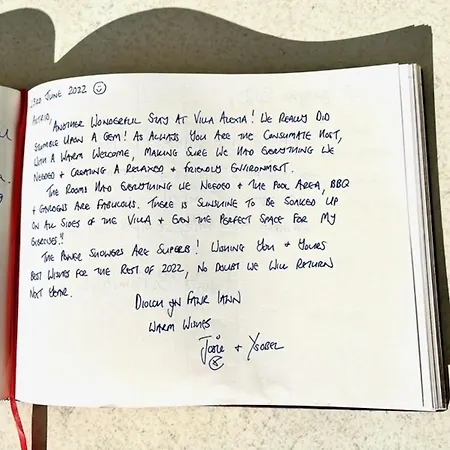 23rd June 2022
Astrid,
Another Wonderful Stay at Villa Alexia! We Really Did
Stumble Upon a Gem! As Always You Are the Consumate Host,
With a Warm Welcome, Making Sure We Had Everything We
Needed + Creating a Relaxed + Friendly Environment.
The Rooms Had Everything We Needed + the Pool Area, BBQ
+ Gardens Are Fabulous. There is Sunshine to be Soaked Up
on All Sides of the Villa + Even the Perfect Space For My
Exercises!!
The Power Showers Are Superb! Wishing You + Yours
Best Wishes for the Rest of 2022, No Doubt We Will Return
Next Year.
Diolch yn Fawr Iawn
Warm Wishes
Josie + Ysobel